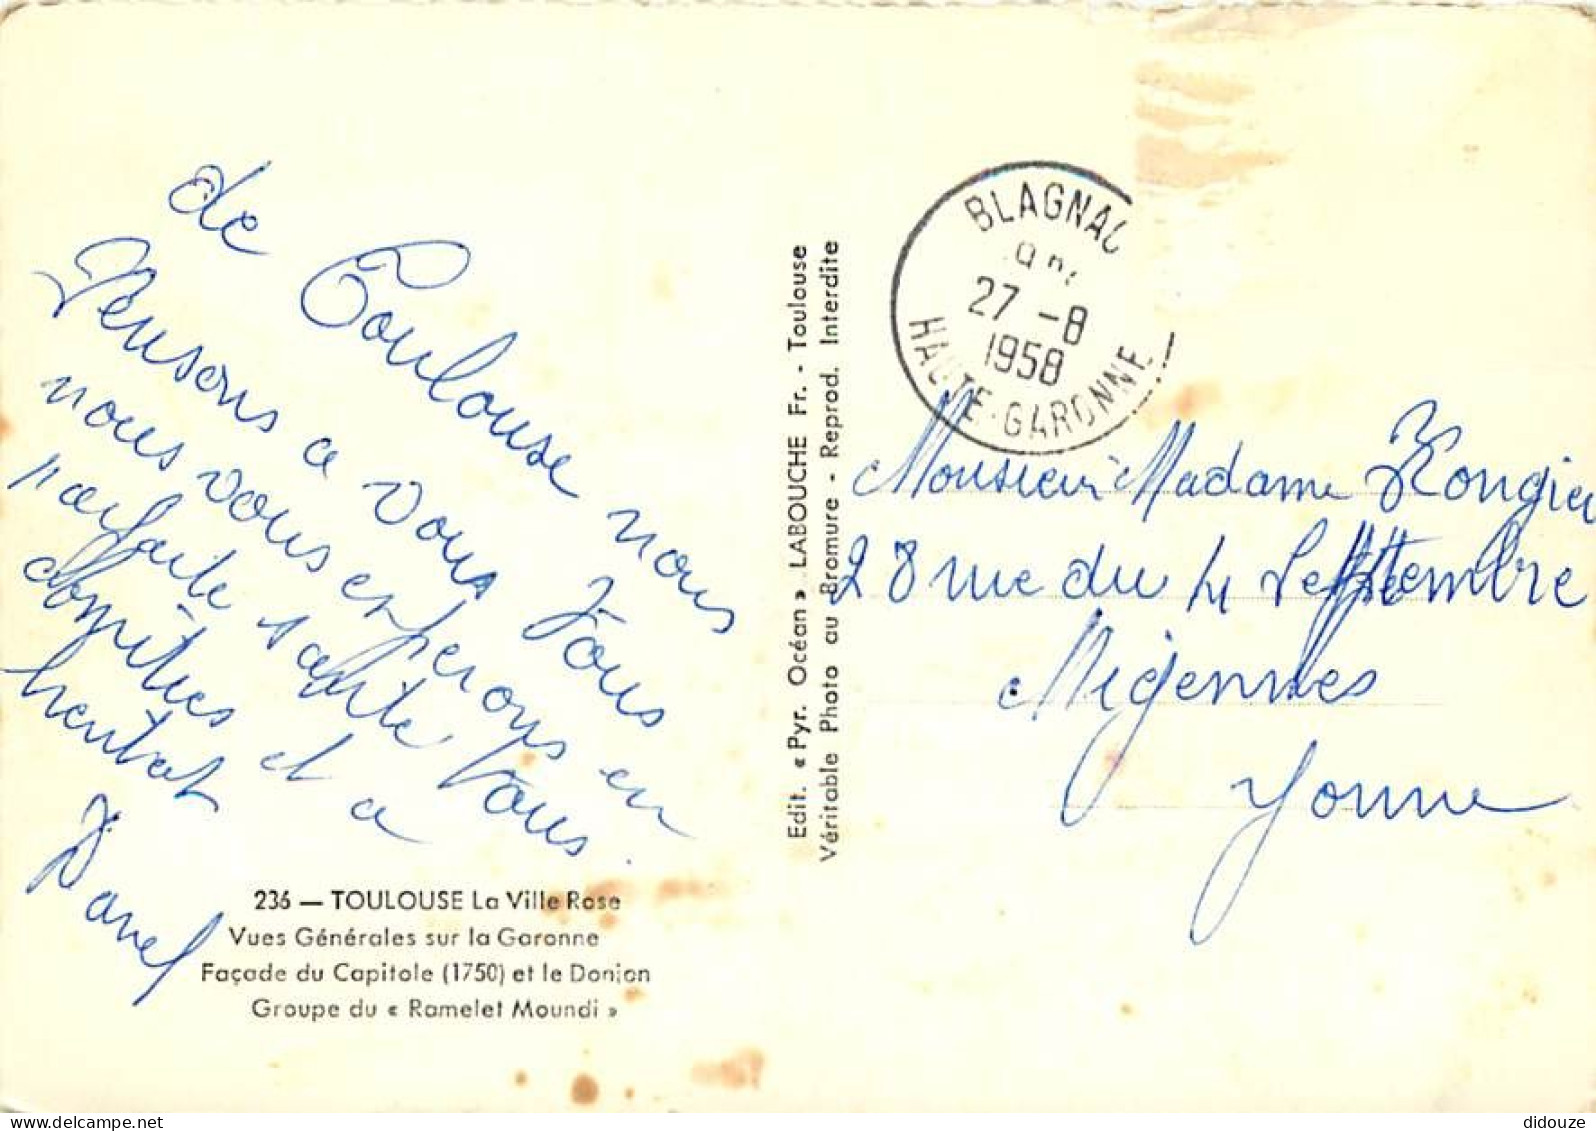 de Toulouse nous
Pensons a vous Tous
nous vous esperons en
parfaite sante Tous.
et a
Edit. « Pyr. Océan » LABOUCHE Fr. - Toulouse
Véritable Photo au Bromure - Reprod. Interdite
BLAGNAC
27 -8
1958
HAUTE-GARONNE
Monsieur Madame
28 rue du 4 Septembre
Migennes
Yonne
236 — TOULOUSE La Ville Rose
Vues Générales sur la Garonne
Façade du Capitole (1750) et le Donjon
Groupe du « Ramelet Moundi »
delcampe.net
didouze